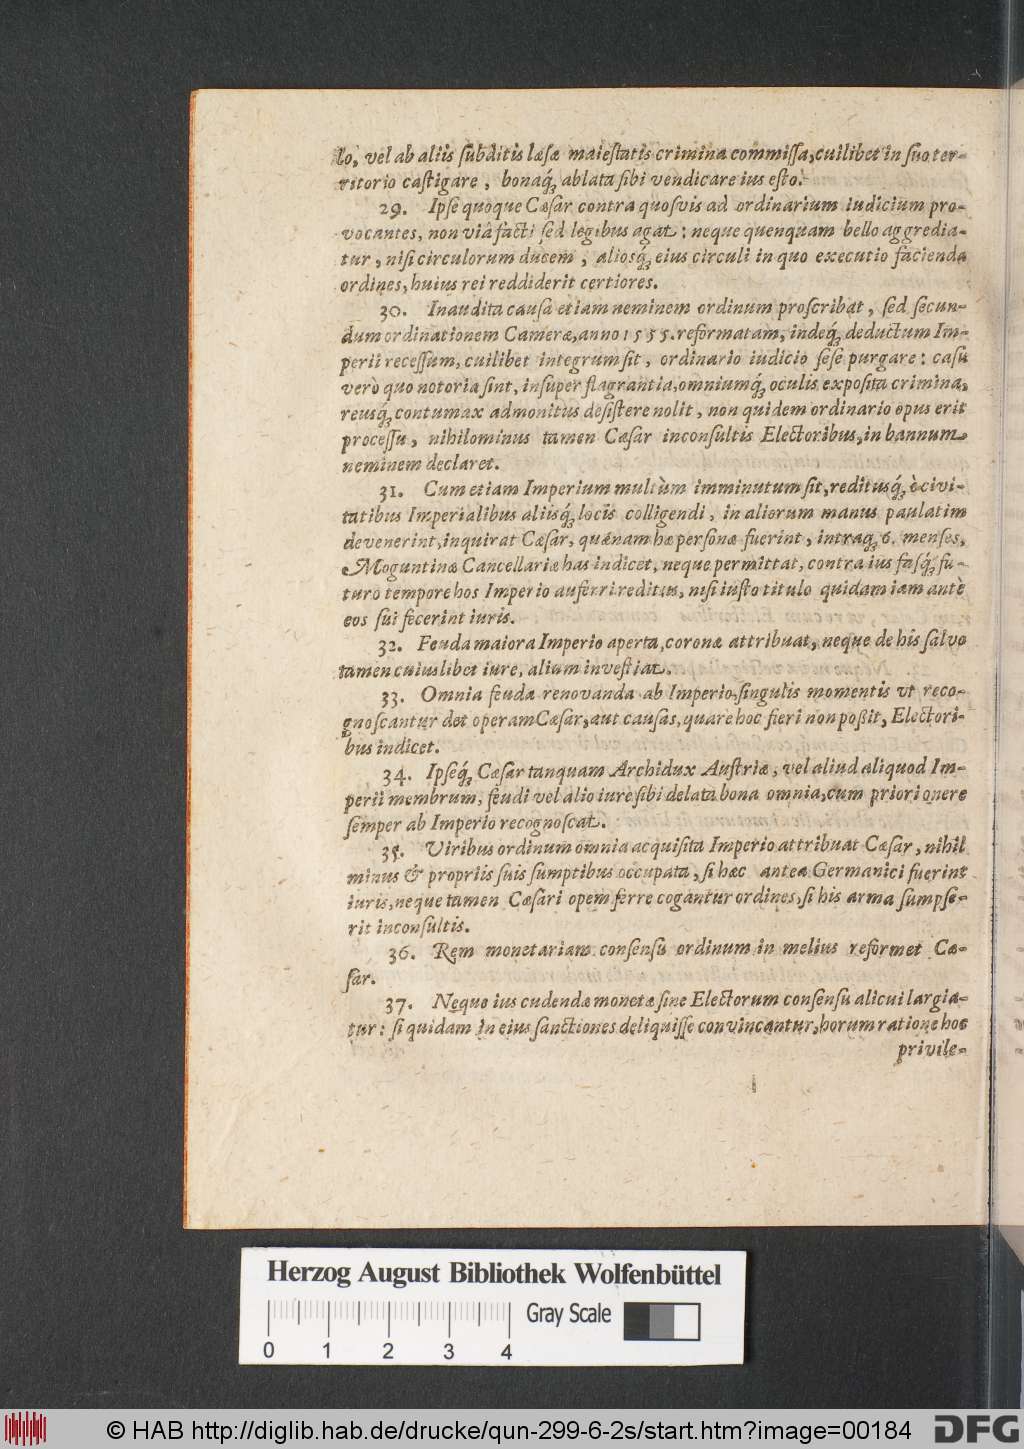 lo, vel ab aliis ſubditis læſæ maieſtatis crimina commiſſa, cuilibet in ſuo ter-
ritorio caſtigare, bonaq́ꝫ ablata ſibi vendicare ius eſto.
29. Ipſe quoque Cæſar contra quoſvis ad ordinarium iudicium pro-
vocantes, non viâ facti ſed legibus agat: neque quenquam bello aggredia-
tur, niſi circulorum ducem, aliosq́ꝫ eius circuli in quo executio facienda
ordines, huius rei reddiderit certiores.
30. Inaudita cauſa etiam neminem ordinum proſcribat, ſed ſecun-
dum ordinationem Cameræ, anno 1555. reformatam, indeq́ꝫ deductum Im-
perii receſſum, cuilibet integrum ſit, ordinario iudicio ſeſe purgare: caſu
verò quo notoria ſint, inſuper flagrantia, omniumq́ꝫ oculis expoſita crimina,
reusq́ꝫ contumax admonitus deſiſtere nolit, non quidem ordinario opus erit
proceſſu, nihilominus tamen Cæſar inconſultis Electoribus, in bannum
neminem declaret.
31. Cum etiam Imperium multùm imminutum ſit, reditusq́ꝫ è civi-
tatibus Imperialibus aliisq́ꝫ locis colligendi, in aliorum manus paulatim
devenerint, inquirat Cæſar, quænam hæ perſonæ fuerint, intraq́ꝫ 6. menſes,
Moguntinæ Cancellariæ has indicet, neque permittat, contra ius faſq́ꝫ fu-
turo tempore hos Imperio auferri reditus, niſi iuſto titulo quidam iam antè
eos ſui fecerint iuris.
32. Feuda maiora Imperio aperta, coronæ attribuat, neque de his ſalvo
tamen cuiuslibet iure, alium inveſtiat.
33. Omnia feuda renovanda ab Imperio, ſingulis momentis vt reco-
gnoſcantur det operam Cæſar, aut cauſas, quare hoc fieri non poßit, Electori-
bus indicet.
34. Ipſeq́ꝫ Cæſar tanquam Archidux Auſtriæ, vel aliud aliquod Im-
perii membrum, feudi vel alio iure ſibi delata bona omnia, cum priori onere
ſemper ab Imperio recognoſcat.
35. Viribus ordinum omnia acquiſita Imperio attribuat Cæſar, nihil
minus & propriis ſuis ſumptibus occupata, ſi hæc antea Germanici fuerint
iuris, neque tamen Cæſari opem ferre cogantur ordines, ſi his arma ſumpſe-
rit inconſultis.
36. Rem monetariam conſenſu ordinum in melius reformet Cæ-
ſar.
37. Neque ius cudendæ monetæ ſine Electorum conſenſu alicui largia-
tur: ſi quidam in eius ſanctiones deliquiſſe convincantur, horum ratione hoc
privile-
Herzog August Bibliothek Wolfenbüttel
Gray Scale
0 1 2 3 4
© HAB http://diglib.hab.de/drucke/qun-299-6-2s/start.htm?image=00184 DFG